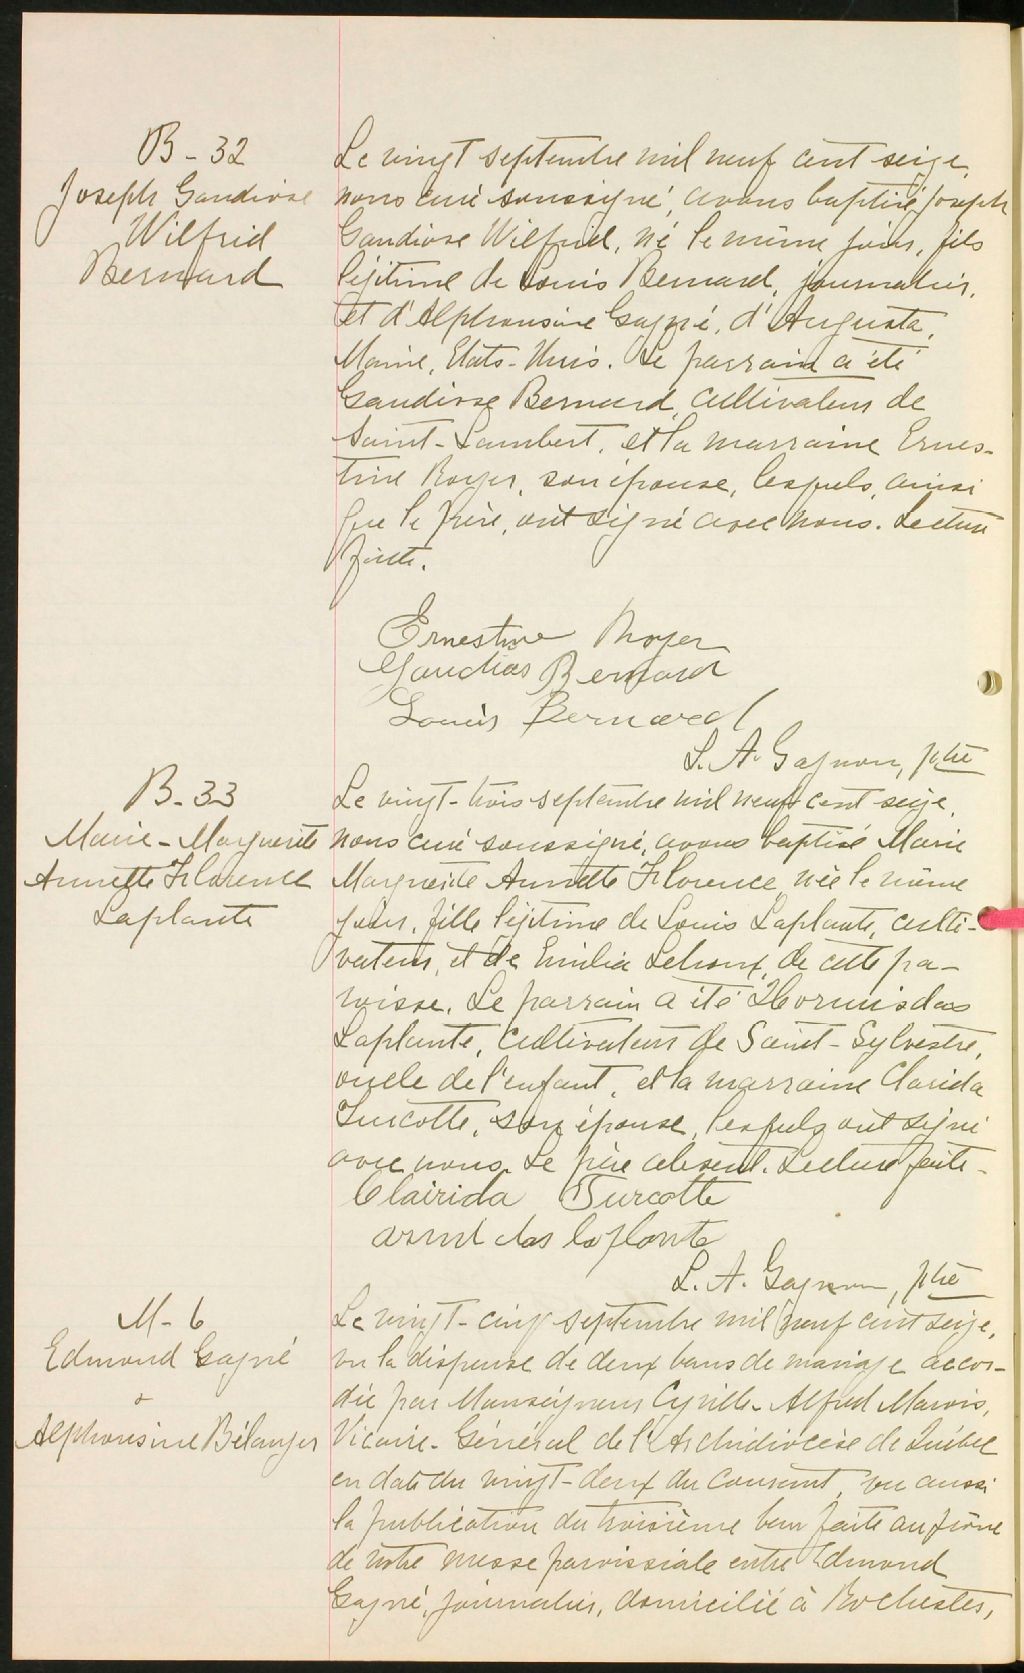 B - 32
Joseph Gaudiose
Wilfrid
Bernard
Le vingt septembre mil neuf cent seize,
nous curé soussigné, avons baptisé Joseph
Gaudiose Wilfrid, né le même jour, fils
légitime de Louis Bernard, journalier,
et d'Alphonsine Gagné, d'Augusta,
Maine, Etats-Unis. Le parrain a été
Gaudiose Bernard, cultivateur de
Saint-Lambert, et la marraine Ernes-
tine Royer, son épouse, lesquels, ainsi
que le père, ont signé avec nous. Lecture
faite.
Ernestine Royer
Gaudias Bernard
Louis Bernard
L. A. Gagnon, ptre
B - 33
Marie-Marguerite
Annette Florence
Laplante
Le vingt-trois septembre mil neuf cent seize,
nous curé soussigné, avons baptisé Marie
Marguerite Annette Florence, née le même
jour, fille légitime de Louis Laplante, culti-
vateur, et de Emilia Lehoux, de cette pa-
roisse. Le parrain a été Hormisdas
Laplante, cultivateur de Saint-Sylvestre,
oncle de l'enfant, et la marraine Clarida
Turcotte, son épouse, lesquels ont signé
avec nous. Le père absent. Lecture faite -
Clairida Turcotte
laplante
L. A. Gagnon, ptre
M - 6
Edmond Gagné
&
Alphonsine Bélanger
Le vingt-cinq septembre mil neuf cent seize,
vu la dispense de deux bans de mariage accor-
dée par Monseigneur Cyrille-Alfred Marois,
Vicaire-Général de l'Archidiocèse de Québec
en date du vingt-deux du courant, vu aussi
la publication du troisième ban faite au prône
de notre messe paroissiale entre Edmond
Gagné, journalier, domicilié à Rochester,